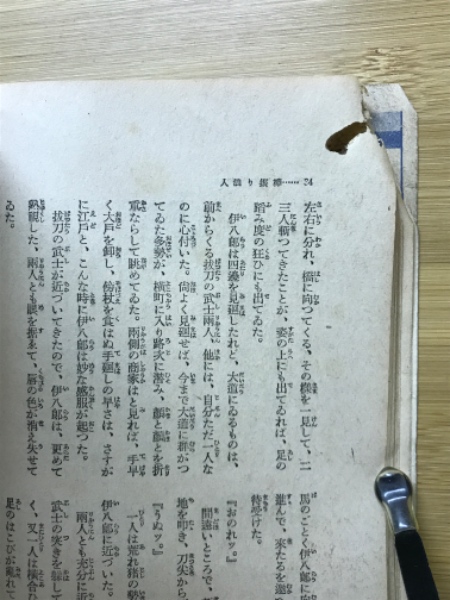 24……
左右に分れ、橋に向つてくる、その樣を一見して、二
三人斬つてきたことが、姿の上にも出てゐれば、足の
踏み度の狂ひにも出てゐた。
伊八郎は四邊を見廻したれど、大道にゐるものは、
前からくる拔刀の武士兩人、他には、自分ただ一人な
のに心付いた。尙よく見廻せば、今まで大道に群がつ
てゐた多勢が、橫町に入り路次に潜み、顏と顏とを折
重ならして眺めてゐた。兩側の商家はと見れば、手早
く大戶を卸し、傍杖を食はぬ手廻しの早さは、さすが
に江戶と、こんな時に伊八郎は妙な感服が起つた。
拔刀の武士が近づいてきたので、伊八郎は、更めて
熟視した、兩人とも眼を据ゑて、唇の色が消え失せて
ゐた。
馬のごとく伊八郎に向
進んで、來たるを
待受けた。
『おのれッ。』
間遠いところで、
地を叩き、刀尖から
『うぬッ。』
一人は荒れ猪の勢
伊八郎に近づいた。
兩人とも充分に近
武士の突きを
く、又一人は橫合ひ
足のはこびが亂れて